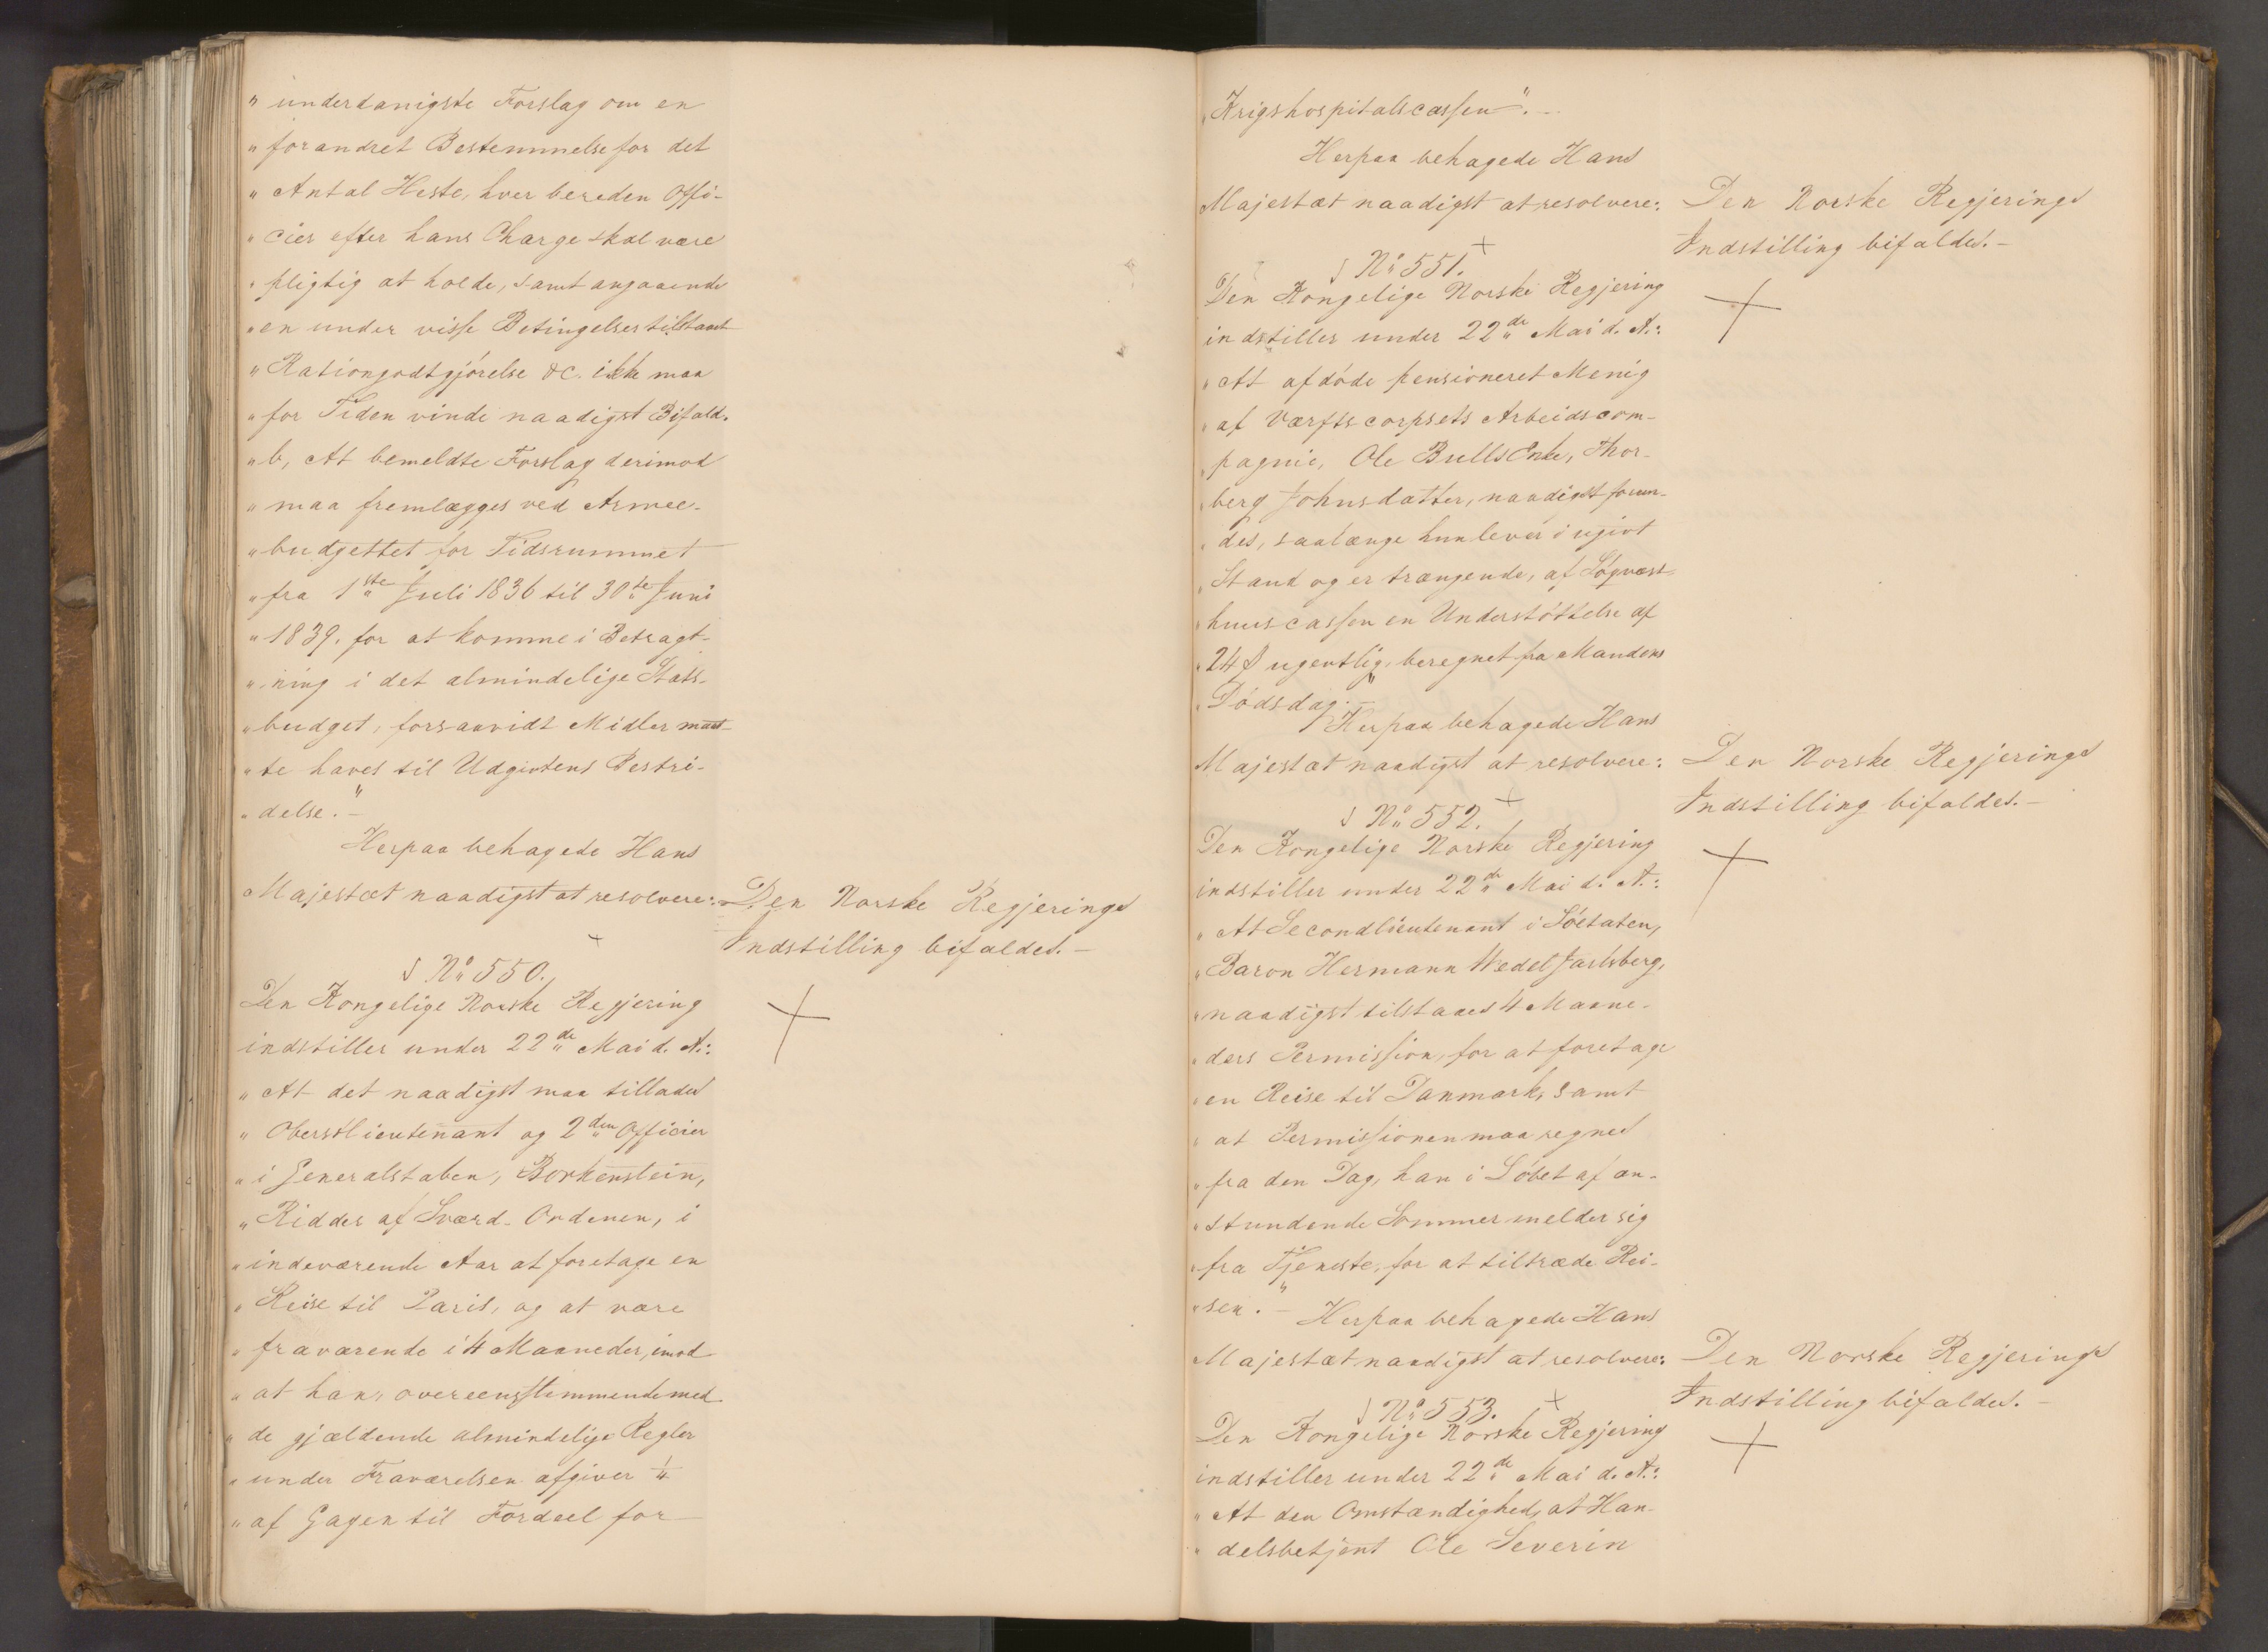 " underdanigste Forslag om en
" forandret Bestemmelse for det
" Antal Heste, hver bereden Offi-
" cier efter hans Charge skal være
" pligtig at holde, samt angaaende
" en under visse Betingelser tilstaaet
" Rationgodtgjörelse &c. ikke maa
" for Tiden vinde naadigst Bifald.
" b, At bemeldte Forslag derimod
" maa fremlægges ved Armee-
" budgettet for Tidsrummet
" fra 1ste Juli 1836 til 30te Juni
" 1839. for at komme i Betragt-
" ning i det almindelige Stats-
" budget, forsaavidt Midler maat-
" te haves til Udgivtens Bestri-
" delse." -
Herpaa behagede Hans
Majestæt naadigst at resolvere:
Den Norske Regjerings
Indstilling bifaldes. -
No 550.
Den Kongelige Norske Regjering
indstiller under 22de Mai d. A.:
" At det naadigst maa tillades
" Oberstlieutenant og 2den Officier
" i Generalstaben, Borkenstein,
" Ridder af Sværd-Ordenen, i
" indeværende Aar at foretage en
" Reise til Paris, og at være
" fraværende i 4 Maaneder, imod
" at han, overeensstemmende med
" de gjældende almindelige Regler
" under Fraværelsen afgiver 1/4
" af Gagen til Fordeel for
" Krigshospitalscassen". -
Herpaa behagede Hans
Majestæt naadigst at resolvere:
Den Norske Regjerings
Indstilling bifaldes. -
No 551.
Den Kongelige Norske Regjering
indstiller under 22de Mai d. A.:
" At afdöde pensioneret Menig
" af Værftscorpsets Arbeidscom-
" pagnie, Ole Bulls Enke, Thor-
" berg Johnsdatter, naadigst forun-
" des, saalænge hun lever i ugivt
" Stand og er trængende, af Söqvæst-
" huuscassen en Understöttelse af
" 24 ß ugentlig, beregnet fra Mandens
" Dödsdag. -
Herpaa behagede Hans
Majestæt naadigst at resolvere:
Den Norske Regjerings
Indstilling bifaldes. -
No 552.
Den Kongelige Norske Regjering
indstiller under 22de Mai d. A.:
" At Secondlieutenant i Söetaten,
" Baron Hermann Wedel Jarlsberg,
" naadigst tilstaaes 4 Maane-
" ders Permission, for at foretage
" en Reise til Danmark, samt
" at Permissionen maa regnes
" fra den Dag, han i Löbet af an-
" stundende Sommer melder sig
" fra Tjeneste, for at tiltræde Rei-
" sen." -
Herpaa behagede Hans
Majestæt naadigst at resolvere:
Den Norske Regjerings
Indstilling bifaldes. -
No 553.
Den Kongelige Norske Regjering
indstiller under 22de Mai d. A.:
" At den Omstændighed, at Han-
" delsbetjent Ole Severin